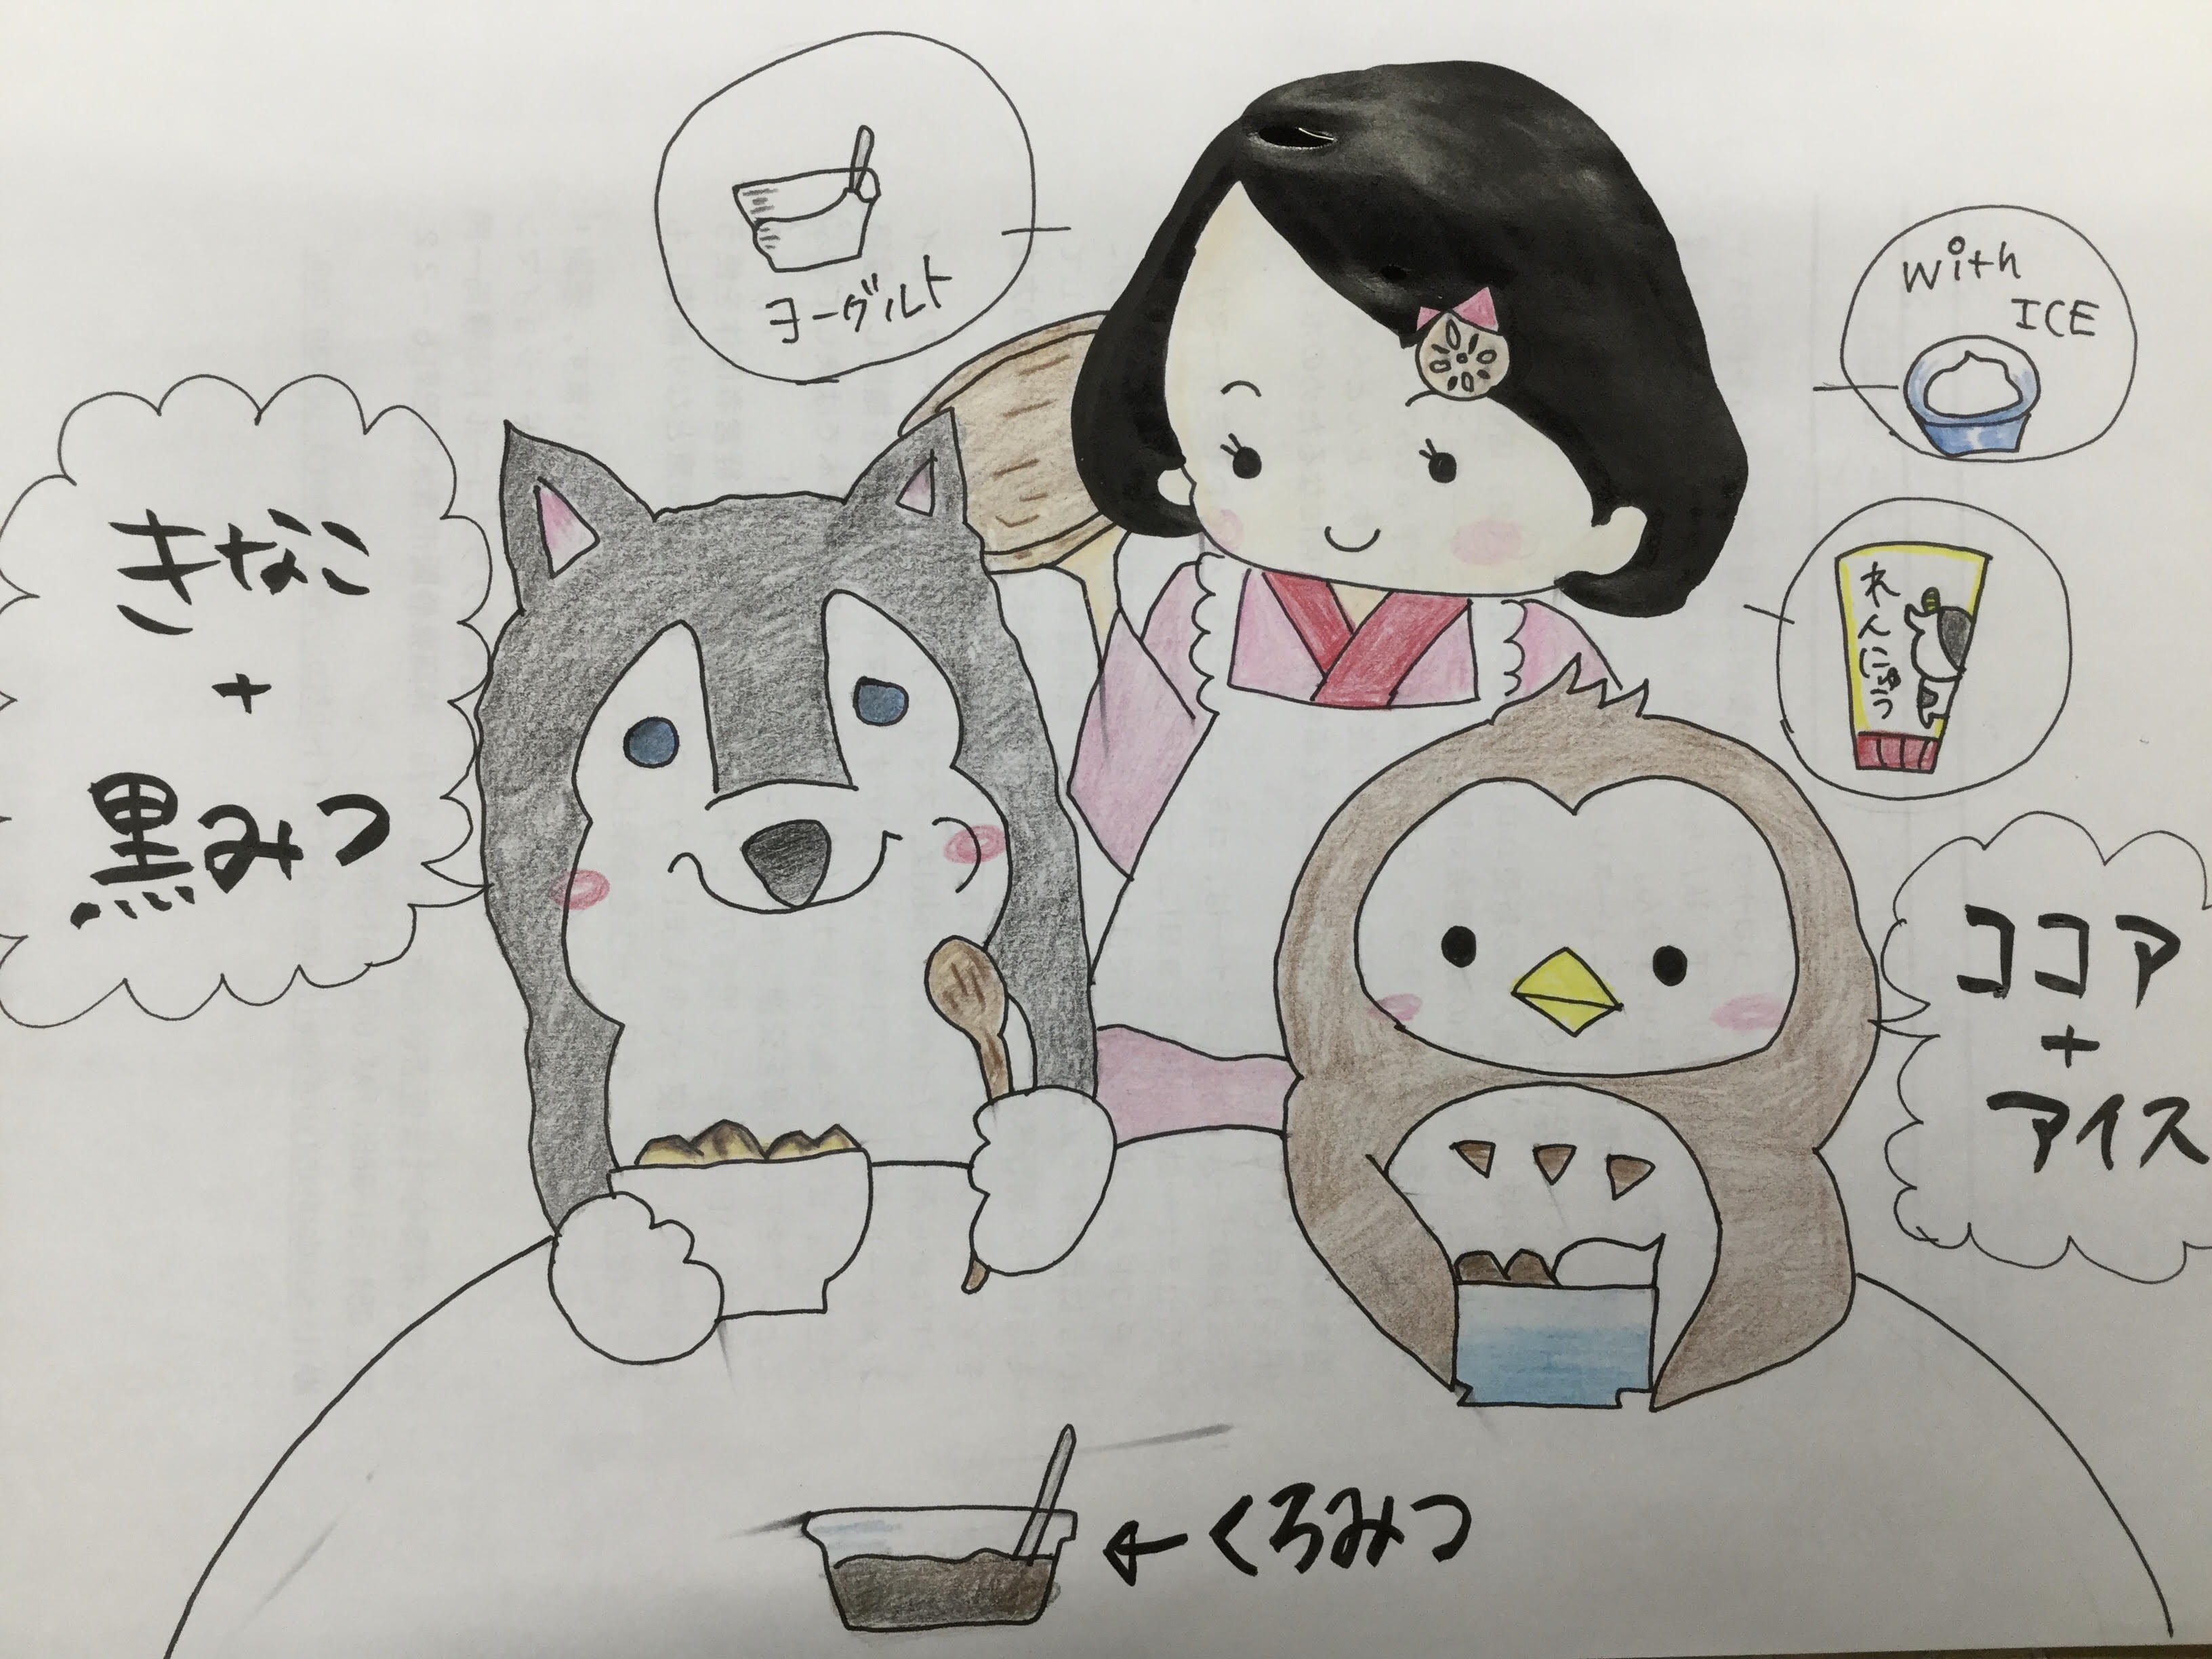 ヨーグルト
with
ICE
れんにゅう
きなこ
+
黒みつ
ココア
+
アイス
←くろみつ